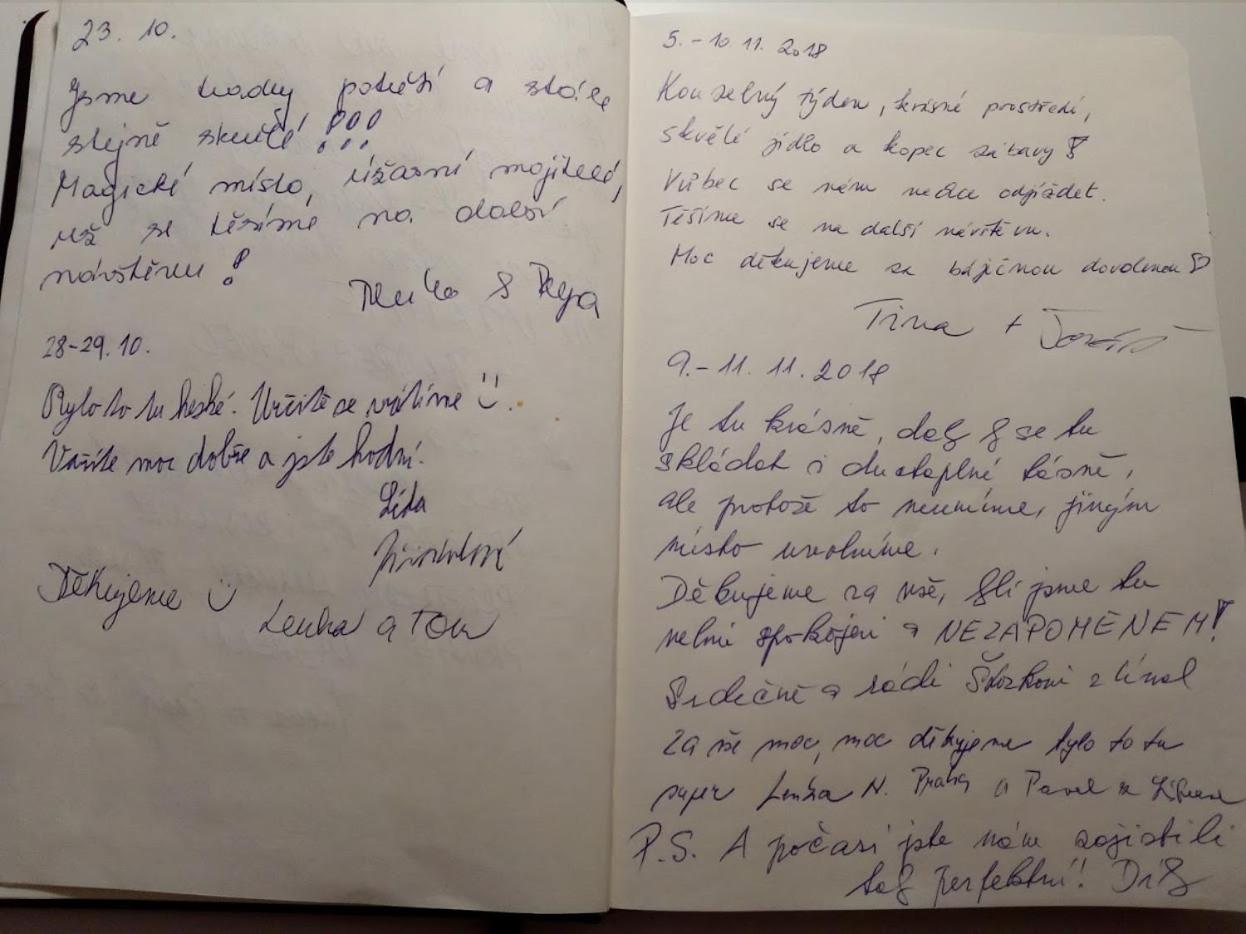 23. 10.
Jsme tady potřetí a stále
stejně skvělé !!!
Magické místo, úžasní majitelé,
už se těšíme na další
návštěvu !
&
28-29. 10.
Bylo to tu hezké. Určitě se vrátíme :).
Vaříte moc dobře a jste hodní.
Lída
Děkujeme :)
Lenka a Tom
5. - 10. 11. 2018
Kouzelný týden, krásné prostředí,
skvělé jídlo a kopec zábavy!
Vůbec se nám nechce odjíždět.
Těšíme se na další návštěvu.
Moc děkujeme za báječnou dovolenou ♡
Tina +
9. - 11. 11. 2018
Je tu krásně, dal by se tu
skládat i duchaplné básně,
ale protože to neumíme, jiným
místo uvolníme.
Děkujeme za vše, byli jsme tu
velmi spokojeni a NEZAPOMENEM!
Srdečně a rádi z
Za vše moc, moc děkujeme bylo to tu
super Lenka N. Praha a Pavel z
P.S. A počasí jste nám zajistili
tak perfektní! Dík